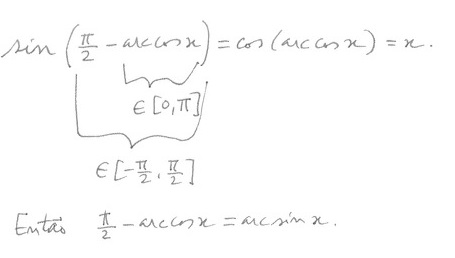 sin (π/2 - arccosx) = cos (arccosx) = x.
∈ [0, π]
∈ [-π/2, π/2]
Então π/2 - arccosx = arcsinx.